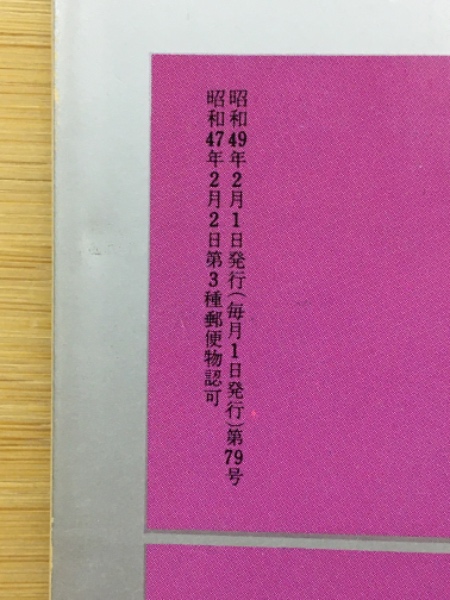 昭和49年2月1日発行(毎月1日発行)第79号
昭和47年2月2日第3種郵便物認可